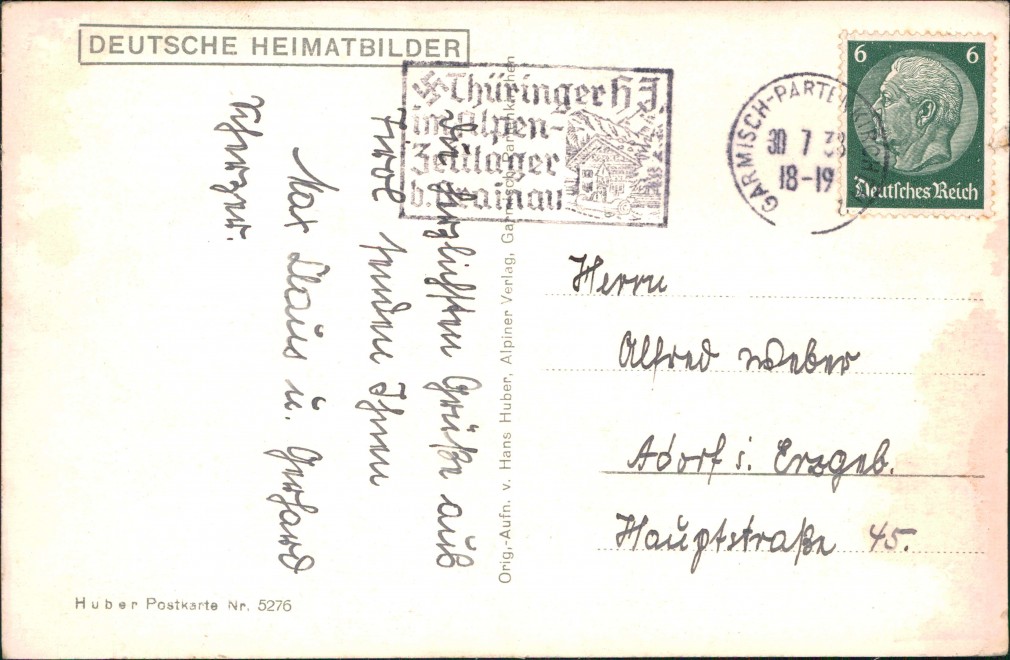 DEUTSCHE HEIMATBILDER
Thüringer HJ.
im Alpen-
Zeltlager
b. Grainau
GARMISCH-PARTENKIRCHEN
30 7 38
18-19
6 6
Deutsches Reich
Die herzlichsten Grüße aus
Tirol
senden Ihnen
Max Claus u. Gerhard
Orig.-Aufn. v. Hans Huber, Alpiner Verlag, Garmisch-Partenkirchen
Herrn
Alfred Weber
Adorf i. Erzgeb.
Hauptstraße 45.
Huber Postkarte Nr. 5276